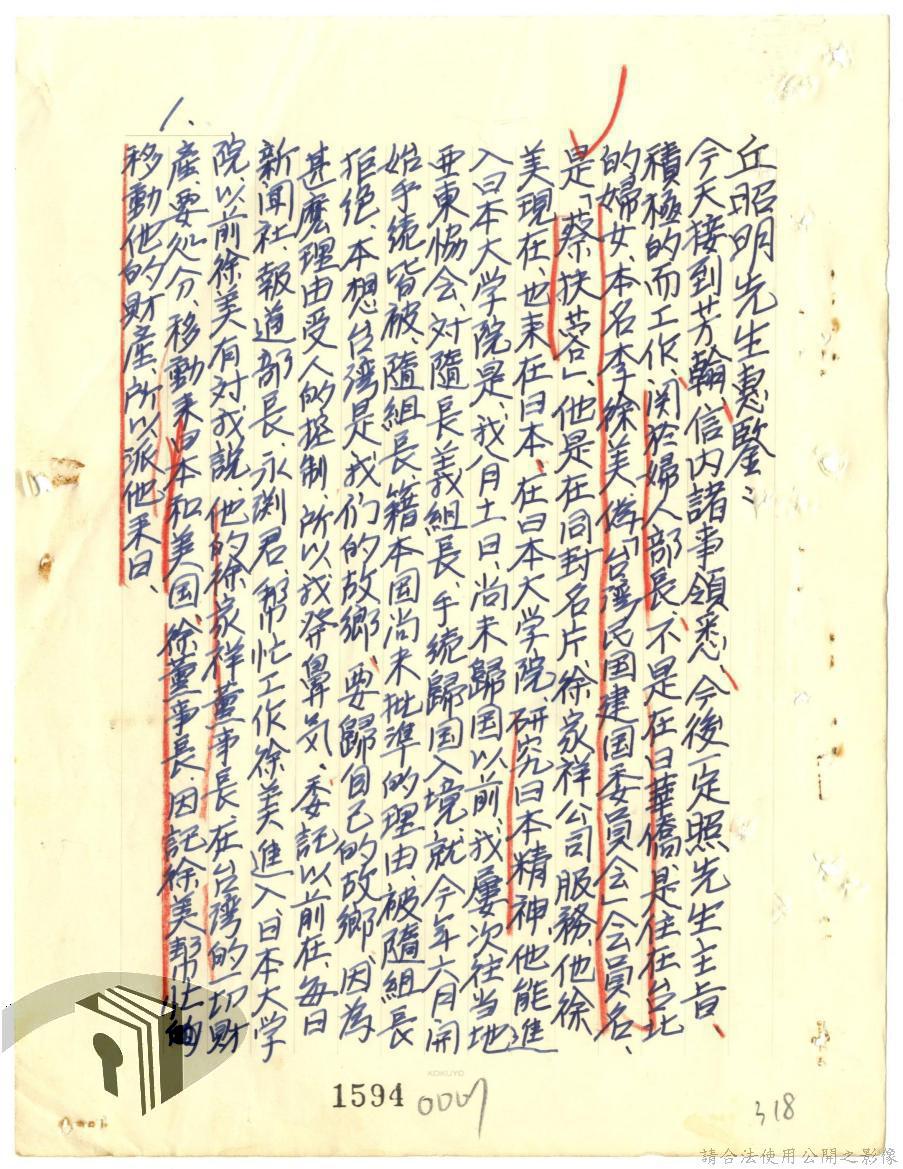 1.
丘昭明先生惠鑒:
今天接到芳翰、信內諸事領悉、今後一定照先生主旨、
積極的而工作、関於婦人部長、不是在日華僑、是住在台北
的婦女、本名李徐美、偽「台湾民国建国委員会」会員名、
是「蔡扶蓉」、他是在同封名片、徐家祥公司服務、他徐
美現在、也来在日本、在日本大学院研究日本精神、他能進
入日本大学院是、我八月十一日、尚未歸国以前、我屢次往当地
亜東協会、対隨長義組長、手続歸国入境、就今年六月開
始手続皆被、隨組長籍本国尚未批準的理由、被隨組長
拒绝、本想台湾是我们的故鄉、要歸自己的故鄉、因為
甚麼理由受人的控制、所以我發鼻気、委託以前在、每日
新闻社、報道部長、永渕君、幇忙工作徐美進入、日本大学
院、以前徐美有対我説、他的徐家祥董事長、在台湾的一切財
產、要処分、移動来日本和美国、徐董事長、因記徐美幇忙他
移動他的財產、所以派他来日、
KOKUYO
1594
0007
318
請合法使用公開之影像